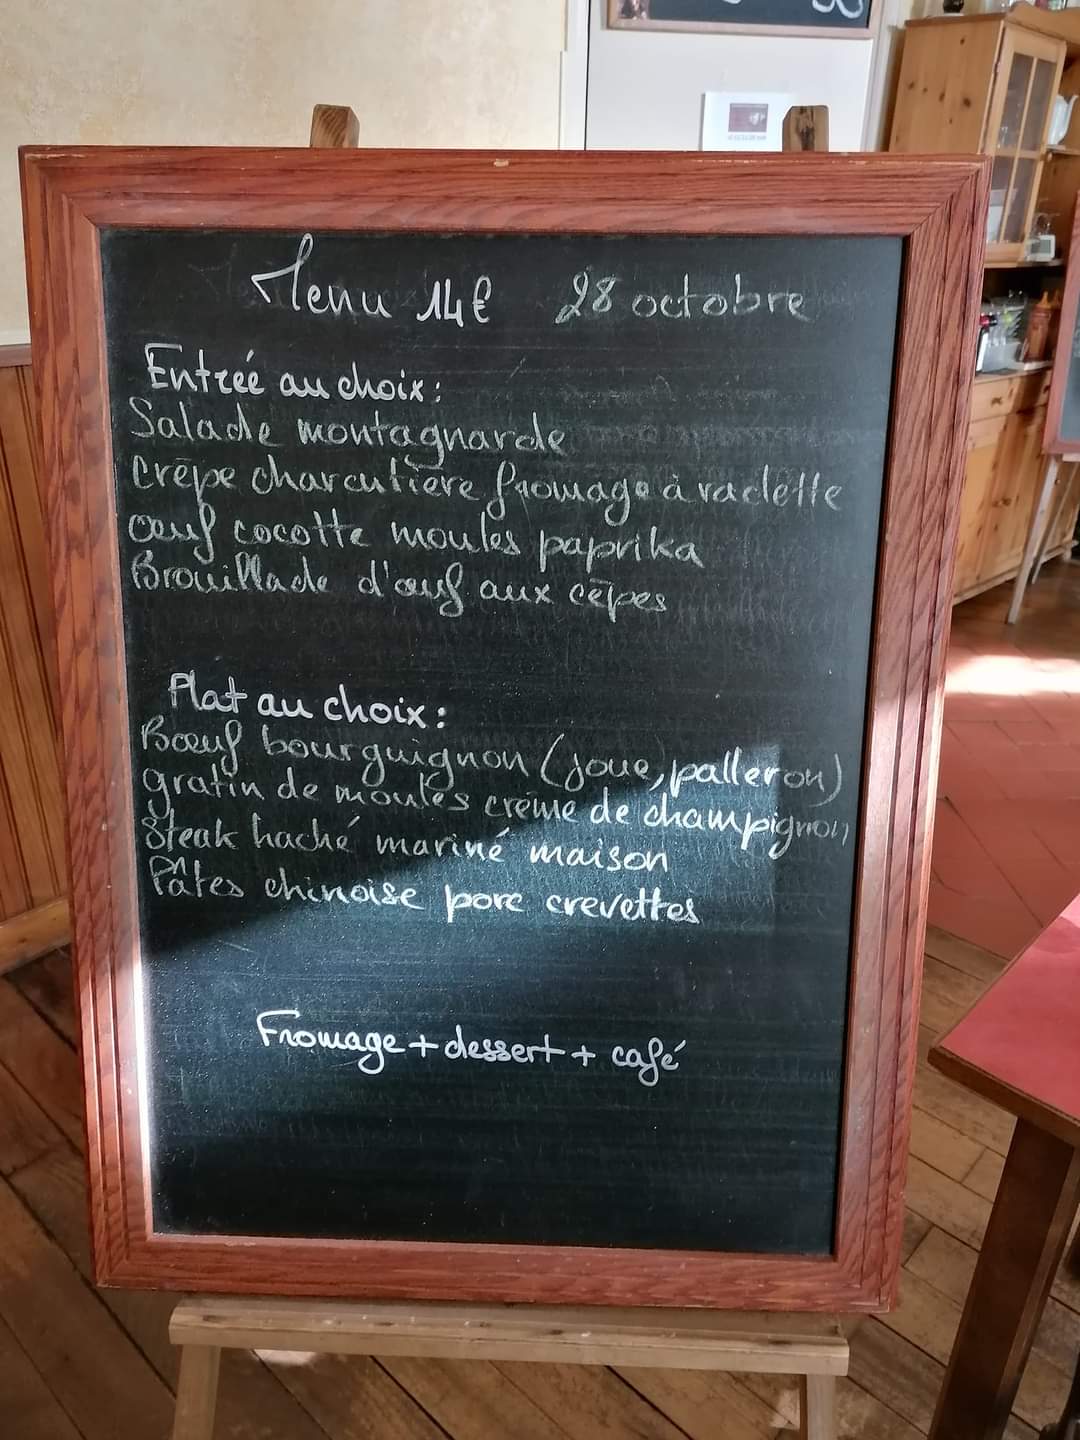 Menu 14€ 28 octobre
Entrée au choix:
Salade montagnarde
Crêpe charcutière fromage à raclette
œuf cocotte moules paprika
Brouillade d'œuf aux cêpes
Plat au choix:
Bœuf bourguignon (joue, palleron)
gratin de moules crème de champignon
Steak haché mariné maison
Pâtes chinoise porc crevettes
Fromage + dessert + café